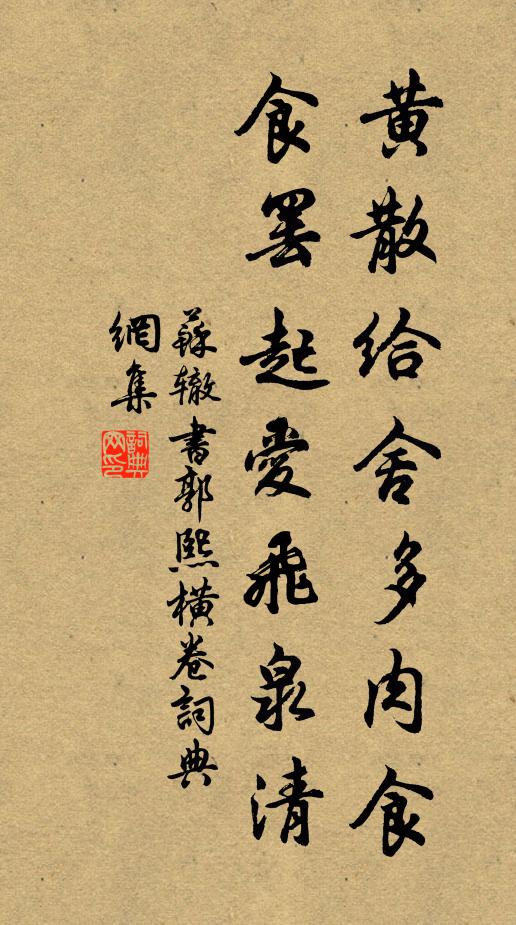 黃散給舍多肉食
食罷起愛飛泉清
蘇辙書郭熙橫卷詞典
網集
詞典
网印